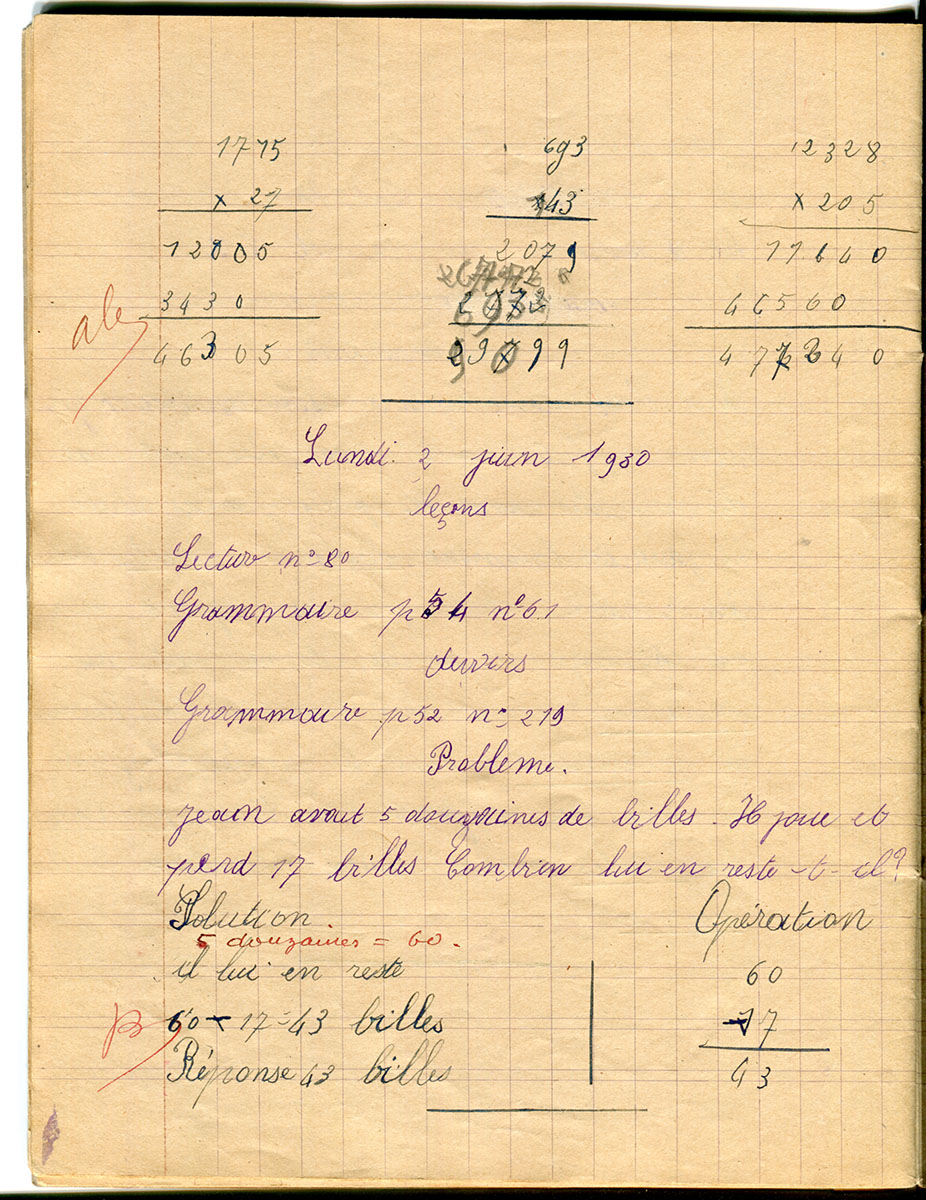 1715 693 2328
× 27 × 43 × 205
12005 2079 11640
3430 2772 46560
46305 29799 477240
Lundi 2 juin 1930
leçons
Lecture n° 80
Grammaire p 54 n° 61
devoirs
Grammaire p 52 n° 219
Problème.
Jean avait 5 douzaines de billes. Il joue et
perd 17 billes Combien lui en reste-t-il?
Solution. Opération
5 douzaines = 60.
il lui en reste 60
60 - 17 = 43 billes - 17
Réponse 43 billes 43